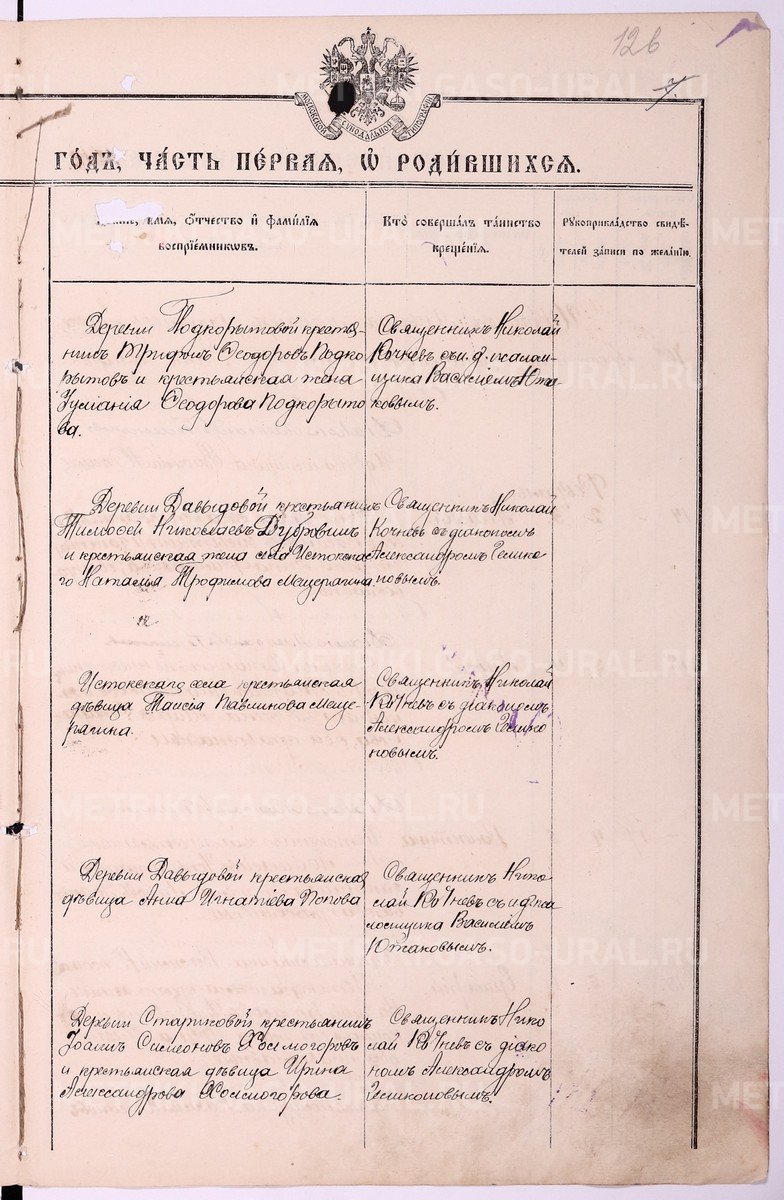 126
7.
МОСКОВСКОЙ СѴНОДАЛЬНОЙ ТИПОГРАФІИ
ГО́ДЪ, ЧА́СТЬ ПЕ́РВАЯ, Ѡ҆ РОДИ́ВШИХСЯ.
и҆́мя, ѻ҆́тчество и҆ фами́лїя
воспрїе́мникѡвъ.
Кто̀ соверша́лъ та́инство
креще́нїя.
Рꙋкоприкла́дство свидѣ́-
телей за́писи по жела́нїю.
Деревни Подкорытовой крестья-
нинъ Трифонъ Ѳеодоровъ Подко-
рытовъ и крестьянская жена
Іуліанія Ѳеодорова Подкорыто-
ва.
Священникъ Николай
Кочневъ съ и. д. псалом-
щика Василіемъ Юта-
ковымъ.
Деревни Давыдовой крестьянинъ
Тимоѳей Николаевъ Дубровинъ
и крестьянская жена села Истокска-
го Наталья Трофимова Мещерягина.
Священникъ Николай
Кочневъ съ діакономъ
Александромъ
новымъ.
Истокскаго села крестьянская
дѣвица Таисія Павлинова Меще-
рягина.
Священникъ Николай
Кочневъ съ діакономъ
Александромъ
новымъ.
Деревни Давыдовой крестьянская
дѣвица Анна Игнатіева Попова
Священникъ Нико-
лай Кочневъ съ и. д. пса-
ломщика Василіемъ
Ютаковымъ.
Деревни Стариковой крестьянинъ
Іоаннъ Симеоновъ Холмогоровъ
и крестьянская дѣвица Ирина
Александрова Холмогорова.
Священникъ Нико-
лай Кочневъ съ діако-
номъ Александромъ
METRIKI.GASO-URAL.RU